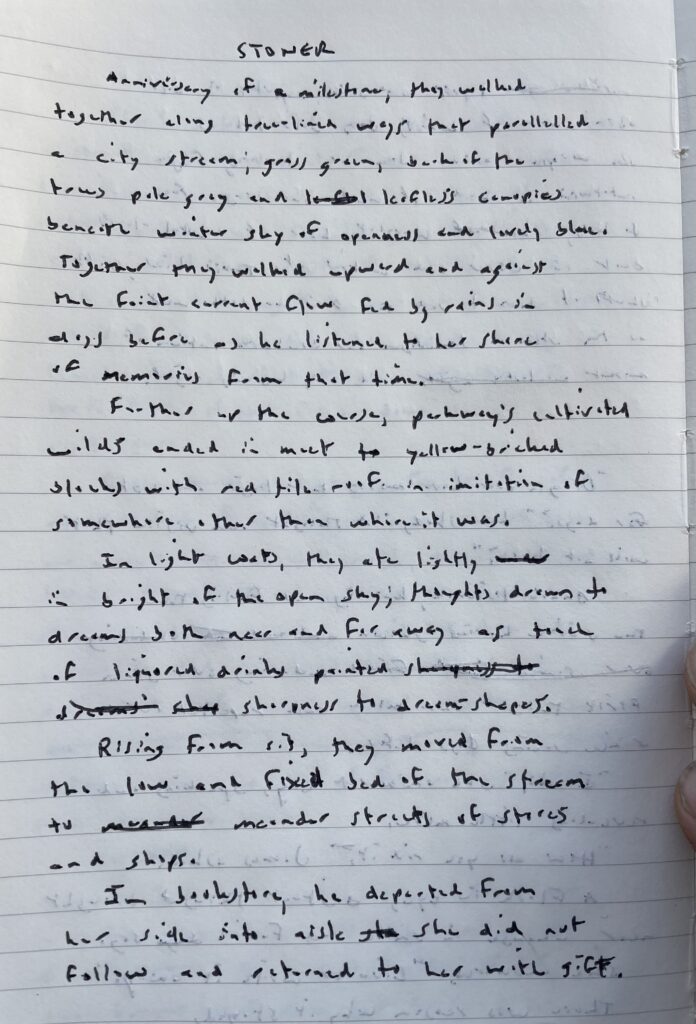 STONER
Anniversary of a milestone, they walked
together along tree-lined ways that parallelled
a city stream; grass green, bark of the
trees pale gray and leafless canopies
beneath winter sky of openness and lovely blue.
Together they walked upward and against
the faint current flow fed by rains in
days before as he listened to her share
of memories from that time.
Further up the course, parkway's cultivated
wilds ended in meet to yellow-bricked
blocks with red tile roof in imitation of
somewhere other than where it was.
In light coats, they ate lightly
in bright of the open sky; thoughts drawn to
dreams both near and far away as touch
of liquored drinks painted
sharpness to dream-shapes.
Rising from sit, they moved from
the low and fixed bed of the stream
to meander streets of stores
and shops.
In bookstore, he departed from
her side into aisle she did not
follow and returned to her with gift.